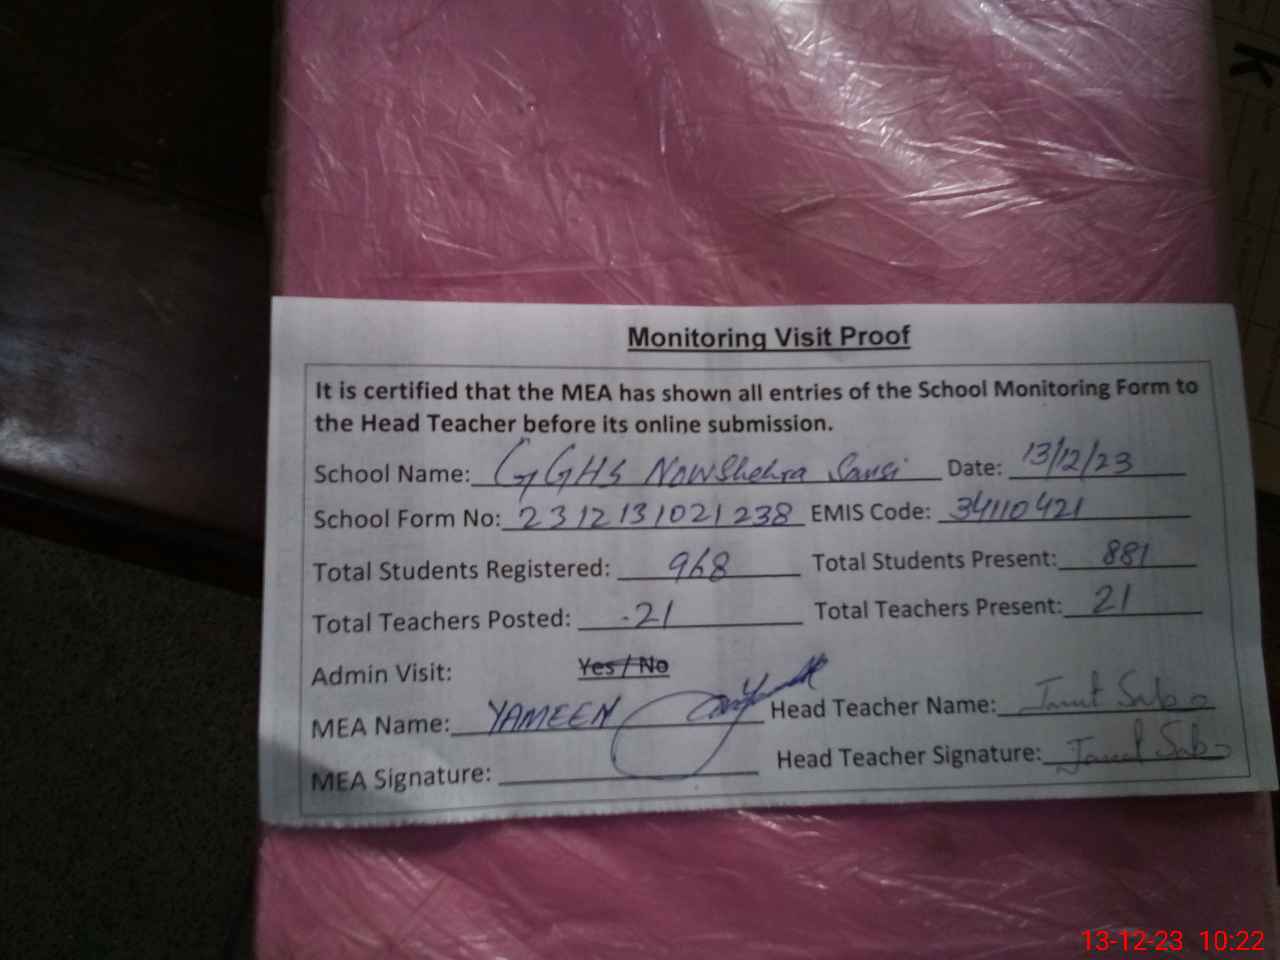 Monitoring Visit Proof
It is certified that the MEA has shown all entries of the School Monitoring Form to
the Head Teacher before its online submission.
School Name: GGHS Nowshehra Sansi Date: 13/12/23
School Form No: 2312131021238 EMIS Code: 34110421
Total Students Registered: 968 Total Students Present: 881
Total Teachers Posted: 21 Total Teachers Present: 21
Admin Visit: Yes / No
MEA Name: YAMEEN Head Teacher Name:
MEA Signature: Head Teacher Signature:
13-12-23 10:22